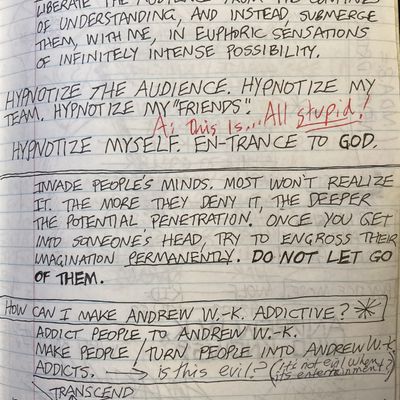 LIBERATE THE AUDIENCE FROM THE CONFINES
OF UNDERSTANDING, AND INSTEAD, SUBMERGE
THEM, WITH ME, IN EUPHORIC SENSATIONS
OF INFINITELY INTENSE POSSIBILITY.
HYPNOTIZE THE AUDIENCE. HYPNOTIZE MY
TEAM. HYPNOTIZE MY "FRIENDS".
A: This Is... All stupid!
HYPNOTIZE MYSELF. EN-TRANCE TO GOD.
INVADE PEOPLE'S MINDS. MOST WON'T REALIZE
IT. THE MORE THEY DENY IT, THE DEEPER
THE POTENTIAL PENETRATION. ONCE YOU GET
INTO SOMEONE'S HEAD, TRY TO ENGROSS THEIR
IMAGINATION PERMANENTLY. DO NOT LET GO
OF THEM.
HOW CAN I MAKE ANDREW W.-K. ADDICTIVE?
ADDICT PEOPLE TO ANDREW W.-K.
MAKE PEOPLE / TURN PEOPLE INTO ANDREW W.-K.
ADDICTS. → is this evil? (it's not evil when
its entertainment?)
TRANSCEND